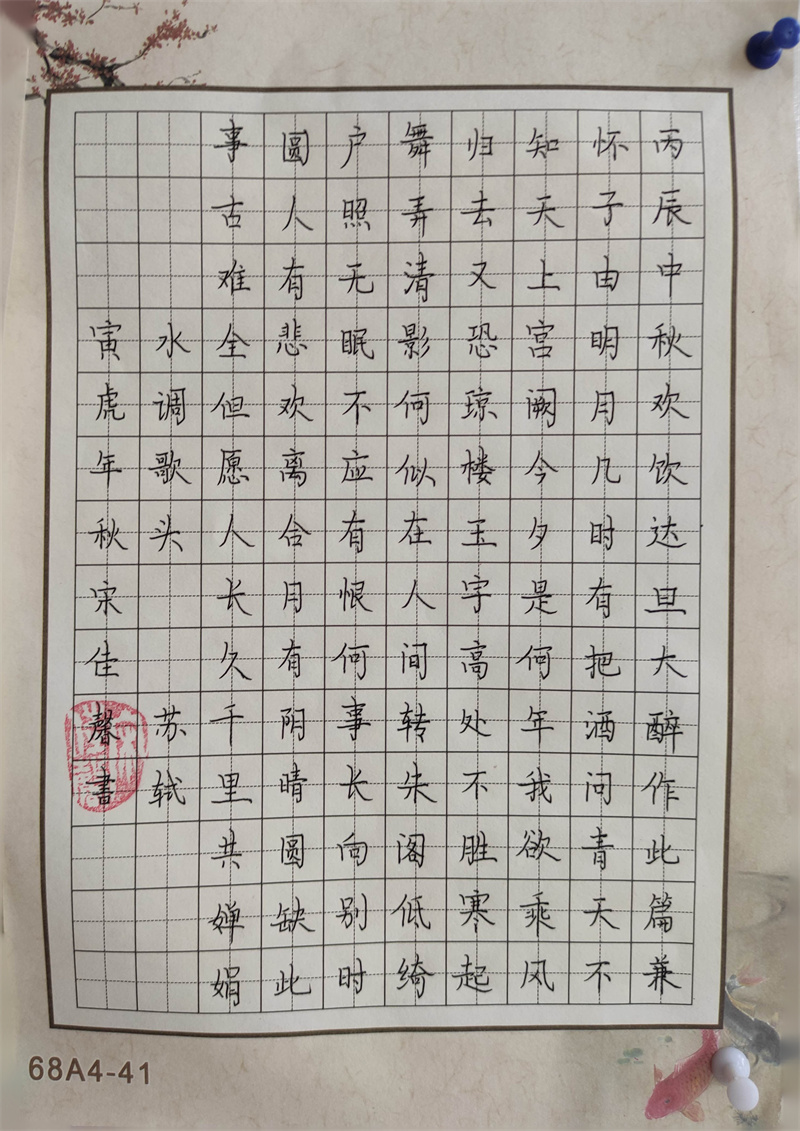 丙辰中秋欢饮达旦大醉作此篇兼
怀子由明月几时有把酒问青天不
知天上宫阙今夕是何年我欲乘风
归去又恐琼楼玉宇高处不胜寒起
舞弄清影何似在人间转朱阁低绮
户照无眠不应有恨何事长向别时
圆人有悲欢离合月有阴晴圆缺此
事古难全但愿人长久千里共婵娟
水调歌头 苏轼
寅虎年秋宋佳馨书
68A4-41